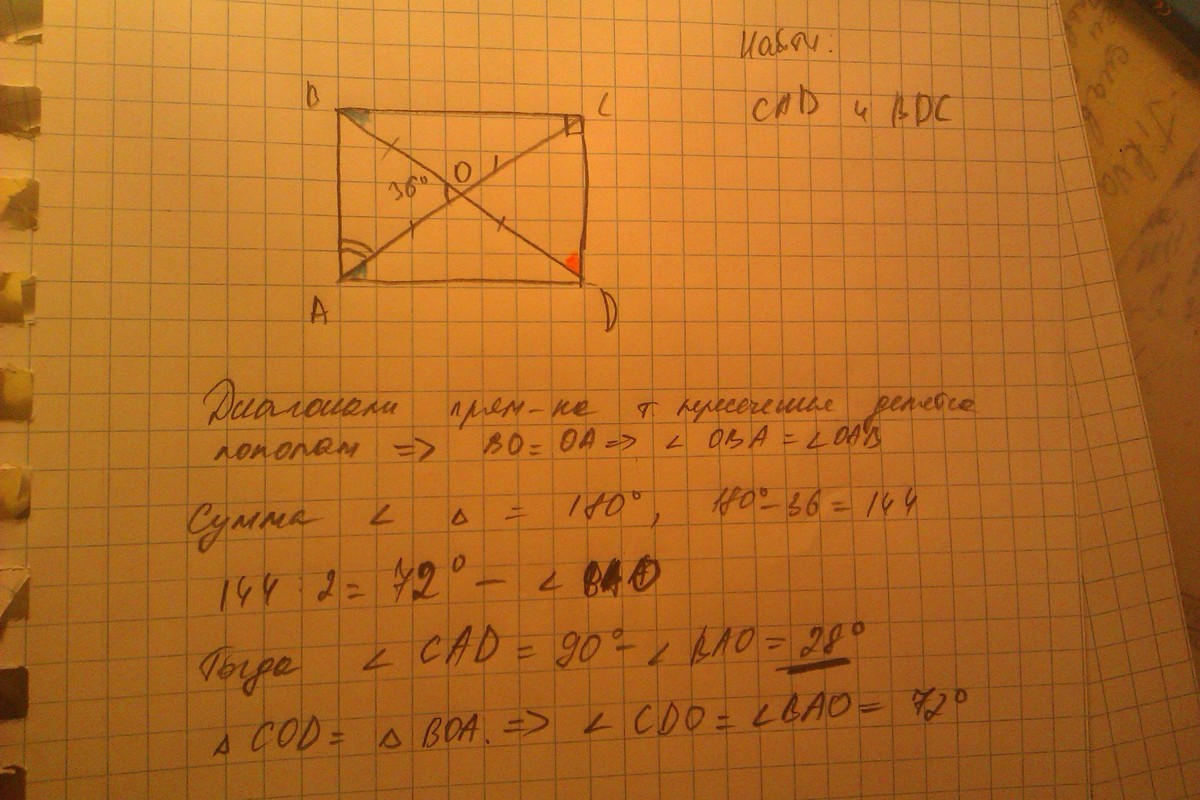 Найти:
CAD и BDC
B
C
O
36°
A
D
Диагонали прям-ка т пересечение делятся
пополам => BO = OA => ∠ OBA = ∠OAB
Сумма ∠ △ = 180°, 180° - 36 = 144
144 : 2 = 72° - ∠ BAO
Тогда ∠ CAD = 90° - ∠ BAO = 28°
△ COD = △ BOA. => ∠ CDO = ∠BAO = 72°